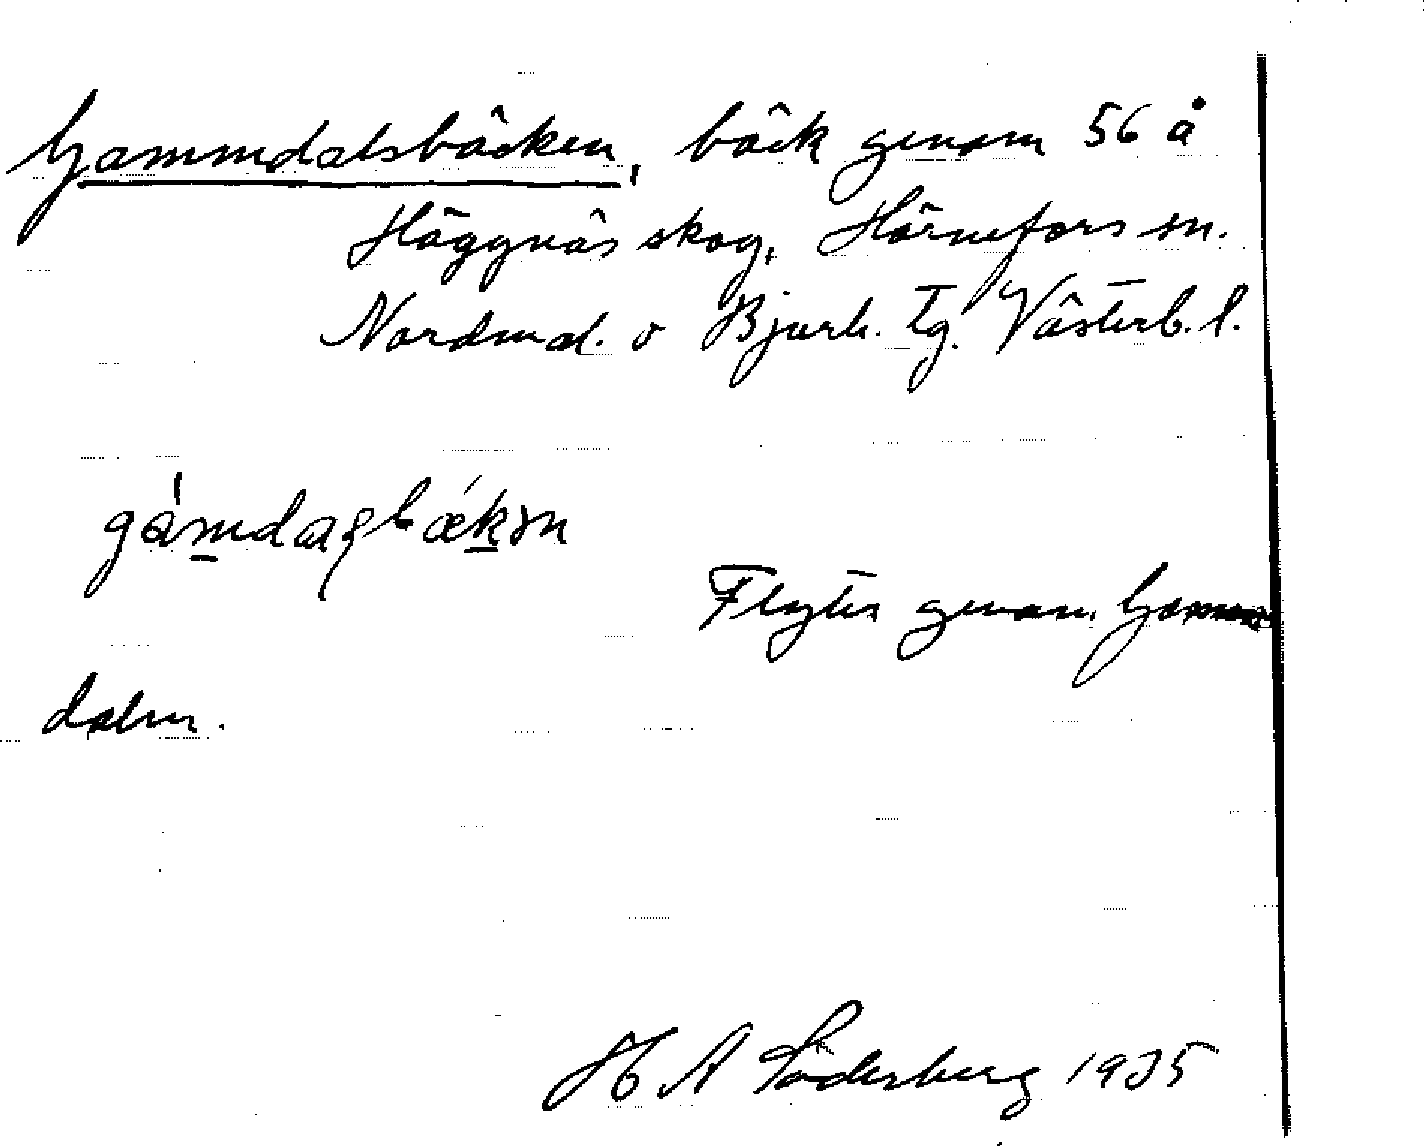 Gammdalsbäcken, bäck genom 56 å
Häggnäs skog, Hörnefors sn.
Nordmal. o Bjurh. tg. Västerb. l.
Flyter genom Gamm
dalen.
H A Söderberg 1935